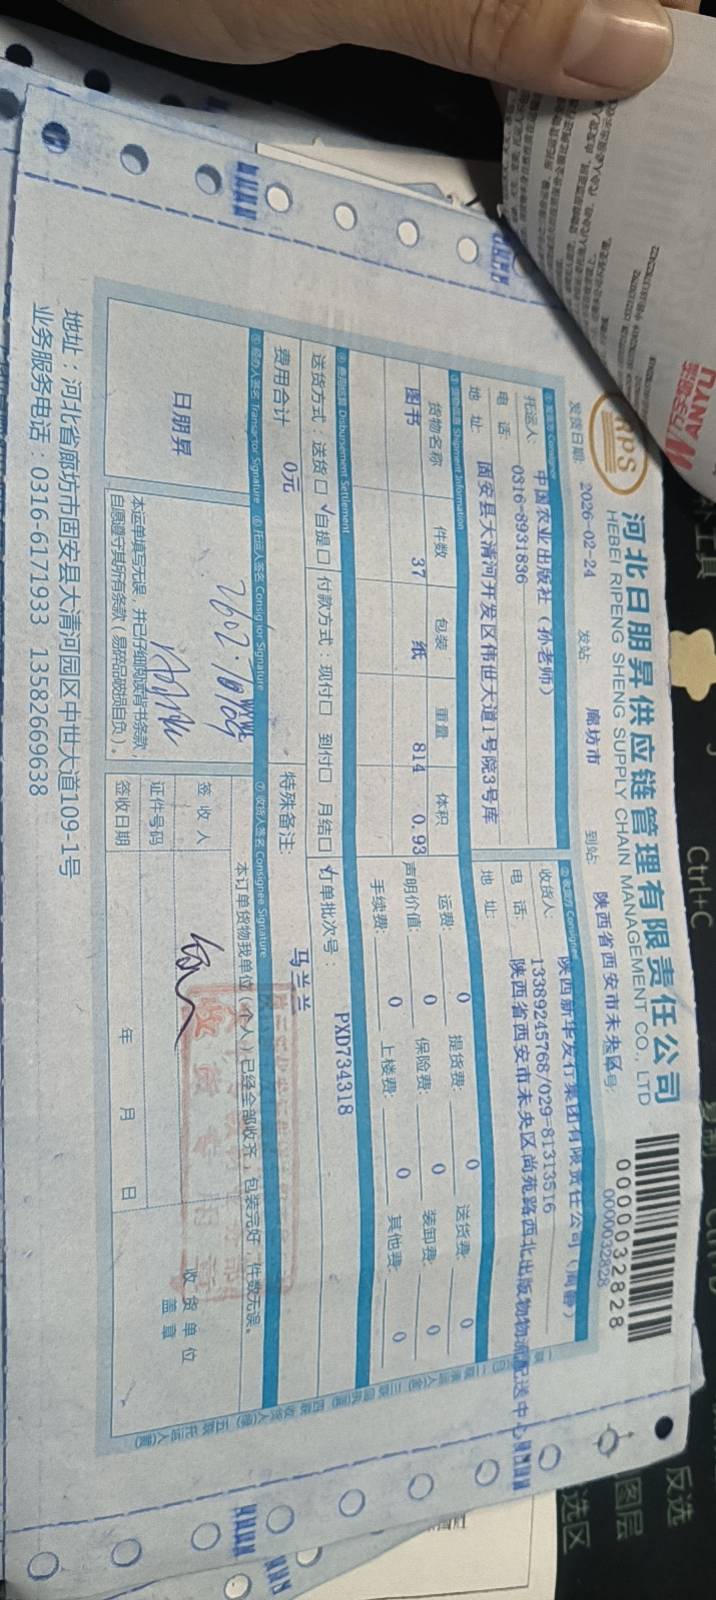 河北日朋昇供应链管理有限责任公司
HEBEI RIPENG SHENG SUPPLY CHAIN MANAGEMENT CO., LTD
RPS
0000032828
0000032828
发货日期: 2026-02-24 发站 廊坊市 到站: 陕西省西安市未央区 号:
① 发货方 Consignor
② 收货方 Consignee
托运人: 中国农业出版社（孙老师）
收货人: 陕西新华发行集团有限责任公司（周静）
电 话: 0316-8931836
电 话: 13389245768/029-81313516
地 址: 固安县大清河开发区伟世大道1号院3号库
地 址: 陕西省西安市未央区尚苑路西北出版物物流配送中心
③ 货物信息 Shipment Information
货物名称 件数 包装 重量 体积
图书 37 纸 814 0.93
运费: 0 提货费: 0 送货费: 0
声明价值: 0 保险费: 0 装卸费: 0
手续费: 0 上楼费: 0 其他费: 0
④ 费用结算 Disbursement Settlement
送货方式：送货口 √自提口 付款方式：现付口 到付口 月结口 √订单批次号： PXD734318
费用合计 0元 特殊备注: 马兰兰
⑤ 经办人签名 Transactor Signature ⑥ 托运人签名 Consignor Signature ⑦ 收货人签名 Consignee Signature
日朋昇
本运单填写无误，并已仔细阅读背书条款，
自愿遵守其所有条款（易碎品破损自负）。
本订单货物我单位（个人）已经全部收齐，包装完好，件数无误。
签 收 人
证件号码
签收日期 年 月 日
收 货 单 位
盖 章
地址：河北省廊坊市固安县大清河园区中世大道109-1号
业务服务电话：0316-6171933 13582669638
Ctrl+C
反选
图层
选区